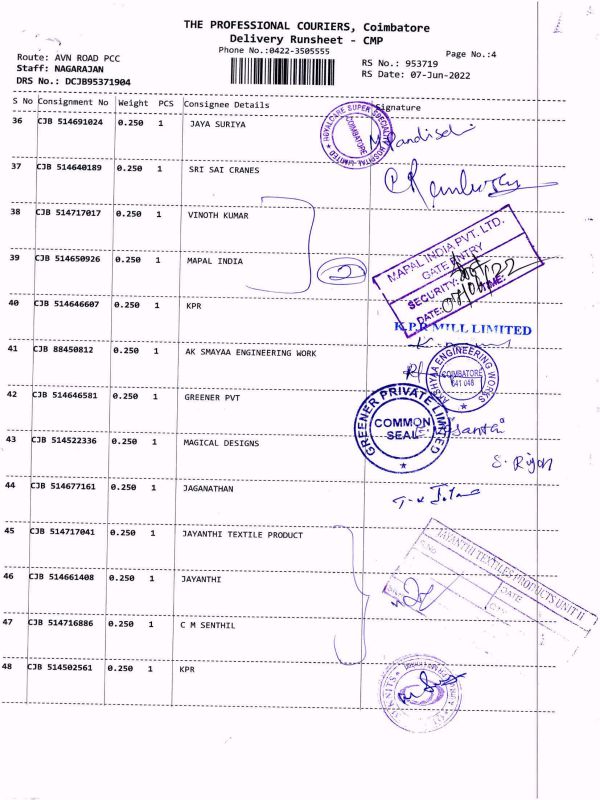 THE PROFESSIONAL COURIERS, Coimbatore
Delivery Runsheet - CMP
Phone No.:0422-3505555
Page No.:4
Route: AVN ROAD PCC
Staff: NAGARAJAN
DRS No.: DCJB95371904
RS No.: 953719
RS Date: 07-Jun-2022
S No Consignment No Weight PCS Consignee Details Signature
36 CJB 514691024 0.250 1 JAYA SURIYA
ROYALCARE SUPER SPECIALITY HOSPITAL LIMITED
COIMBATORE
37 CJB 514640189 0.250 1 SRI SAI CRANES
38 CJB 514717017 0.250 1 VINOTH KUMAR
39 CJB 514650926 0.250 1 MAPAL INDIA
2
MAPAL INDIA PVT. LTD.
GATE ENTRY
SECURITY:
DATE: TIME:
40 CJB 514646607 0.250 1 KPR
K.P.R MILL LIMITED
41 CJB 88450812 0.250 1 AK SMAYAA ENGINEERING WORK
AKSHYAA ENGINEERING WORKS
COIMBATORE
641 048
42 CJB 514646581 0.250 1 GREENER PVT
GREENER PRIVATE LIMITED
COMMON
SEAL
43 CJB 514522336 0.250 1 MAGICAL DESIGNS
44 CJB 514677161 0.250 1 JAGANATHAN
45 CJB 514717041 0.250 1 JAYANTHI TEXTILE PRODUCT
JAYANTHI TEXTILES PRODUCTS UNIT II
DATE
46 CJB 514661408 0.250 1 JAYANTHI
47 CJB 514716886 0.250 1 C M SENTHIL
48 CJB 514502561 0.250 1 KPR